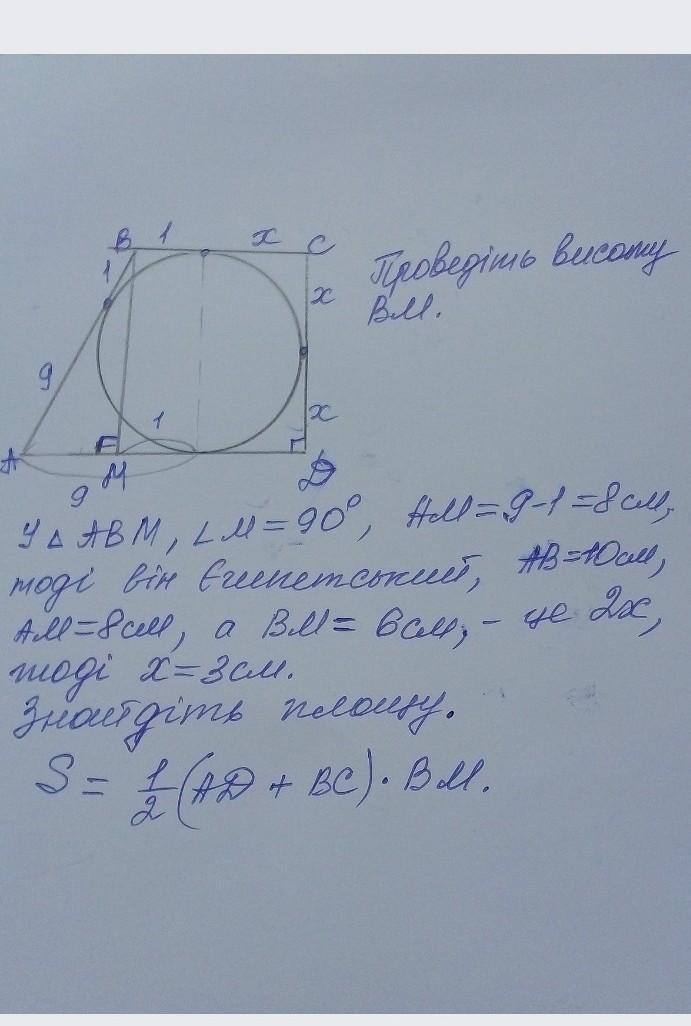 B 1 x C
1 x
Проведіть висоту
ВМ.
9
1 x
A M D
9
У △ ABM, ∠M = 90°, AM = 9-1 = 8 см,
тоді він Єгипетський, AB = 10 см,
AM = 8 см, а BM = 6 см, - це 2x,
тоді x = 3 см.
Знайдіть площу.
S = 1/2 (AD + BC) · BM.